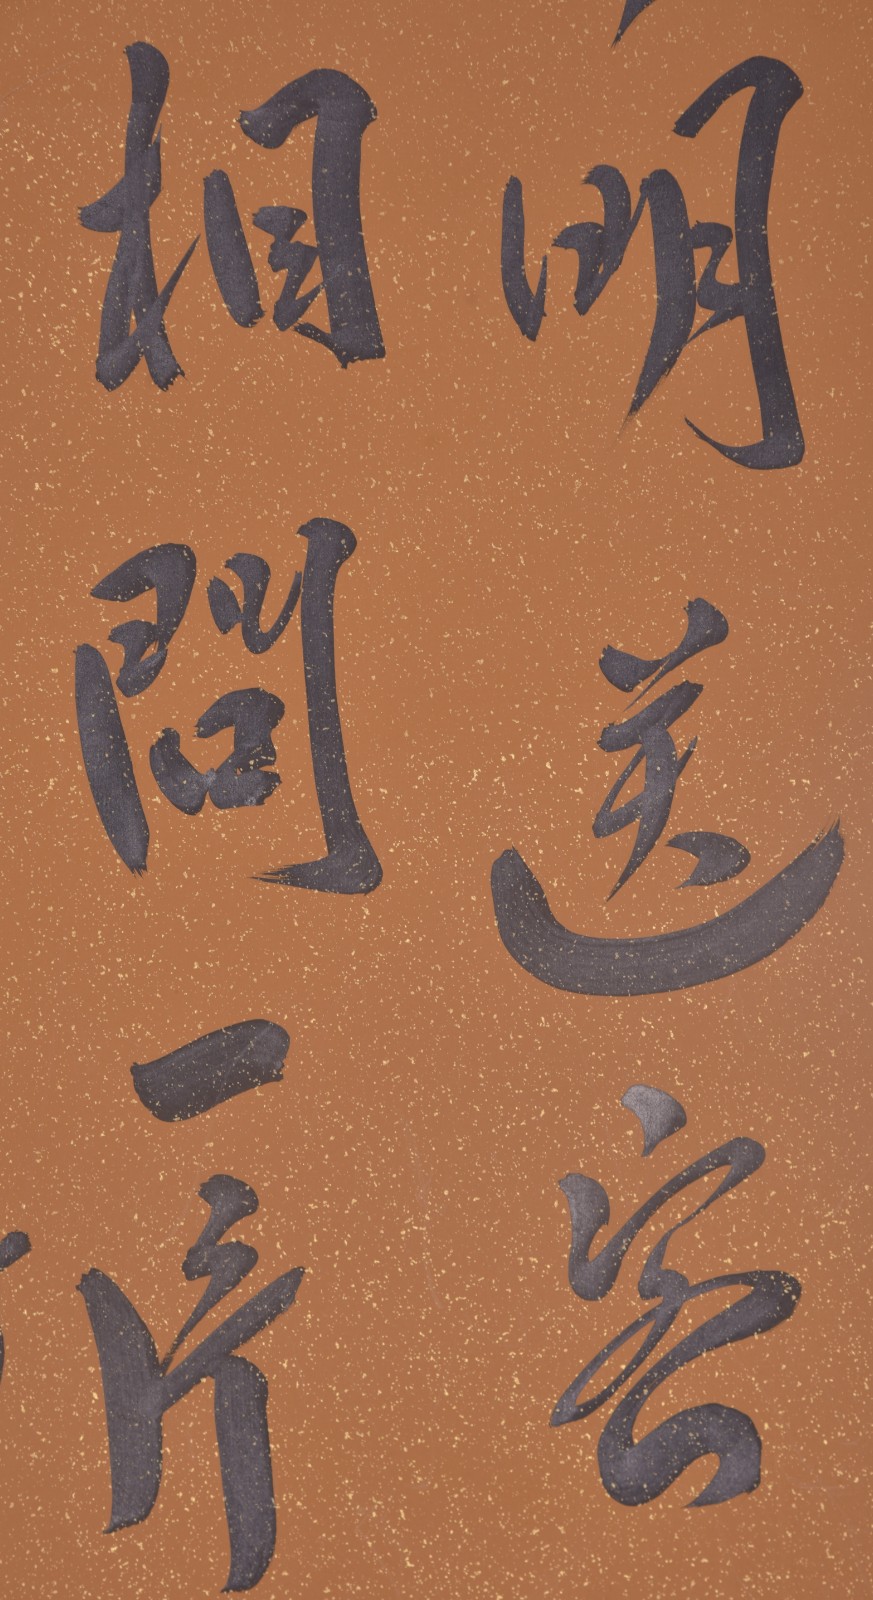 明送客
相問一片